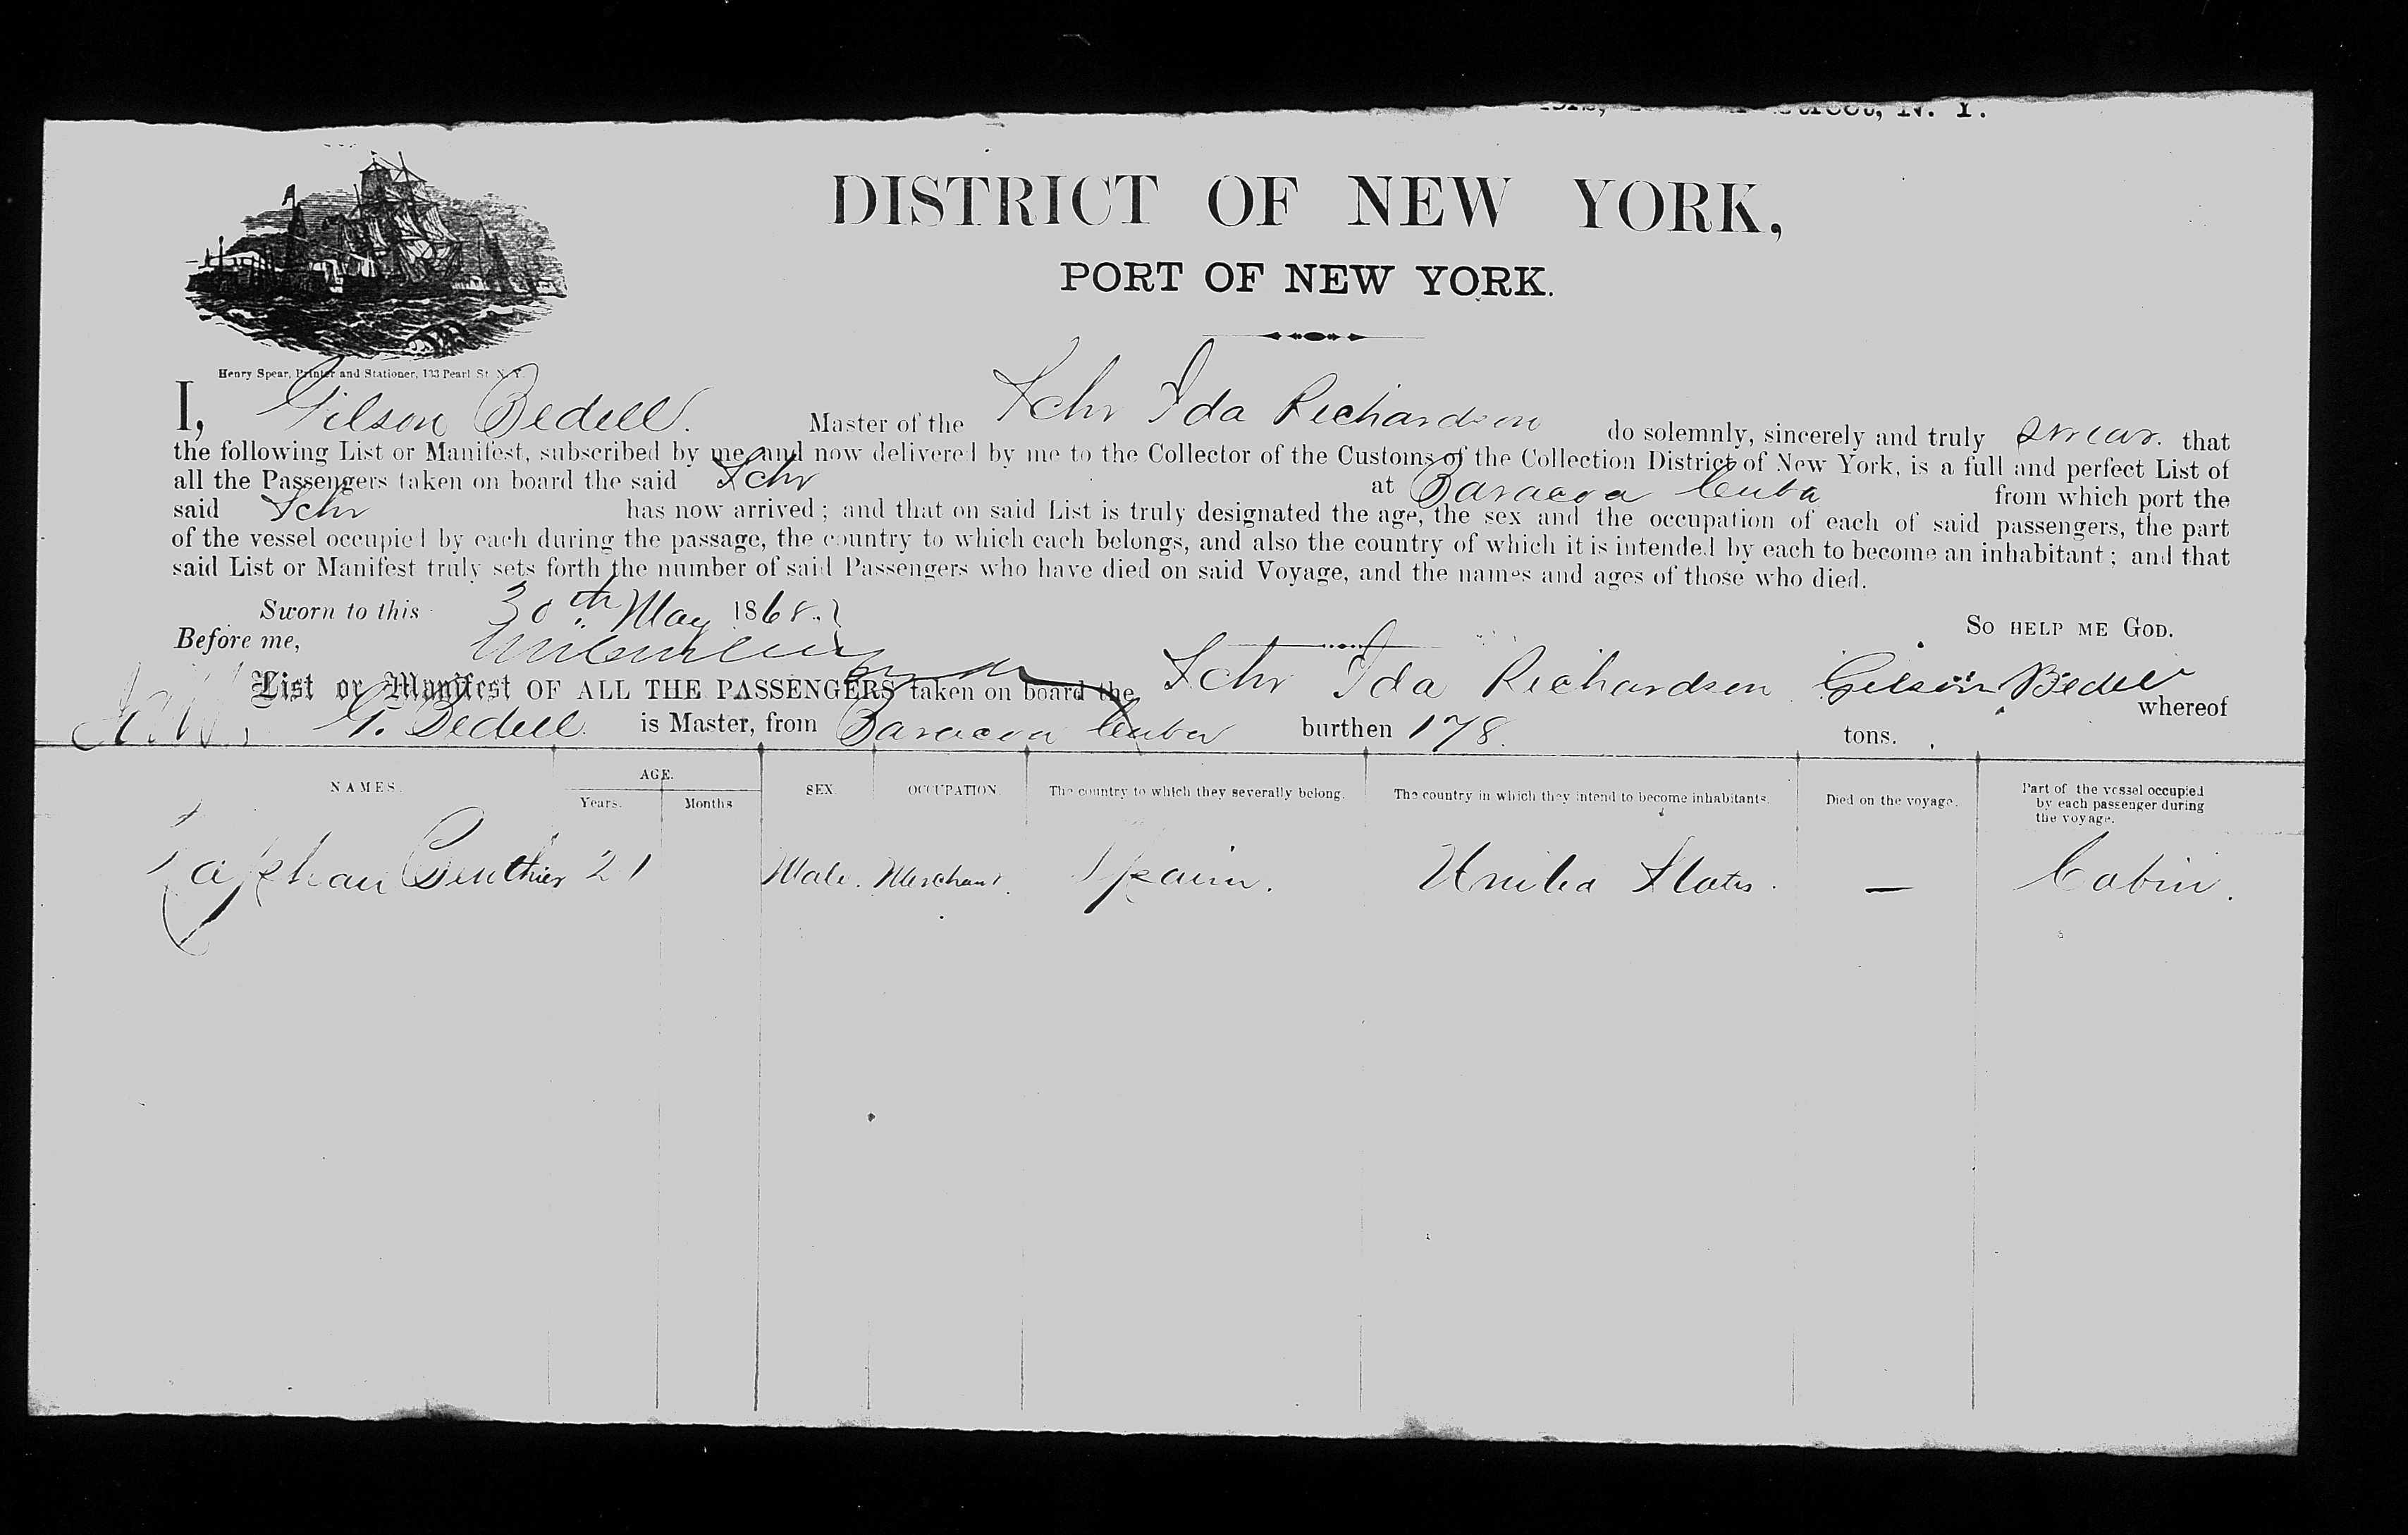 N. Y.
DISTRICT OF NEW YORK,
PORT OF NEW YORK.
Henry Spear, Printer and Stationer, 133 Pearl St. N. Y.
I, Gilson Bedell. Master of the Schr Ida Richardson do solemnly, sincerely and truly swear. that
the following List or Manifest, subscribed by me and now delivered by me to the Collector of the Customs of the Collection District of New York, is a full and perfect List of
all the Passengers taken on board the said Schr at Baracoa Cuba from which port the
said Schr has now arrived; and that on said List is truly designated the age, the sex and the occupation of each of said passengers, the part
of the vessel occupied by each during the passage, the country to which each belongs, and also the country of which it is intended by each to become an inhabitant; and that
said List or Manifest truly sets forth the number of said Passengers who have died on said Voyage, and the names and ages of those who died.
Sworn to this 30th May 1868. So HELP ME GOD.
Before me,
Gilson Bedell
List or Manifest OF ALL THE PASSENGERS taken on board the Schr Ida Richardson whereof
G. Bedell is Master, from Baracoa Cuba burthen 178. tons.
NAMES. AGE. Years. Months SEX. OCCUPATION. The country to which they severally belong. The country in which they intend to become inhabitants. Died on the voyage. Part of the vessel occupied by each passenger during the voyage.
21 Male. Merchant. Spain. United States. — Cabin.